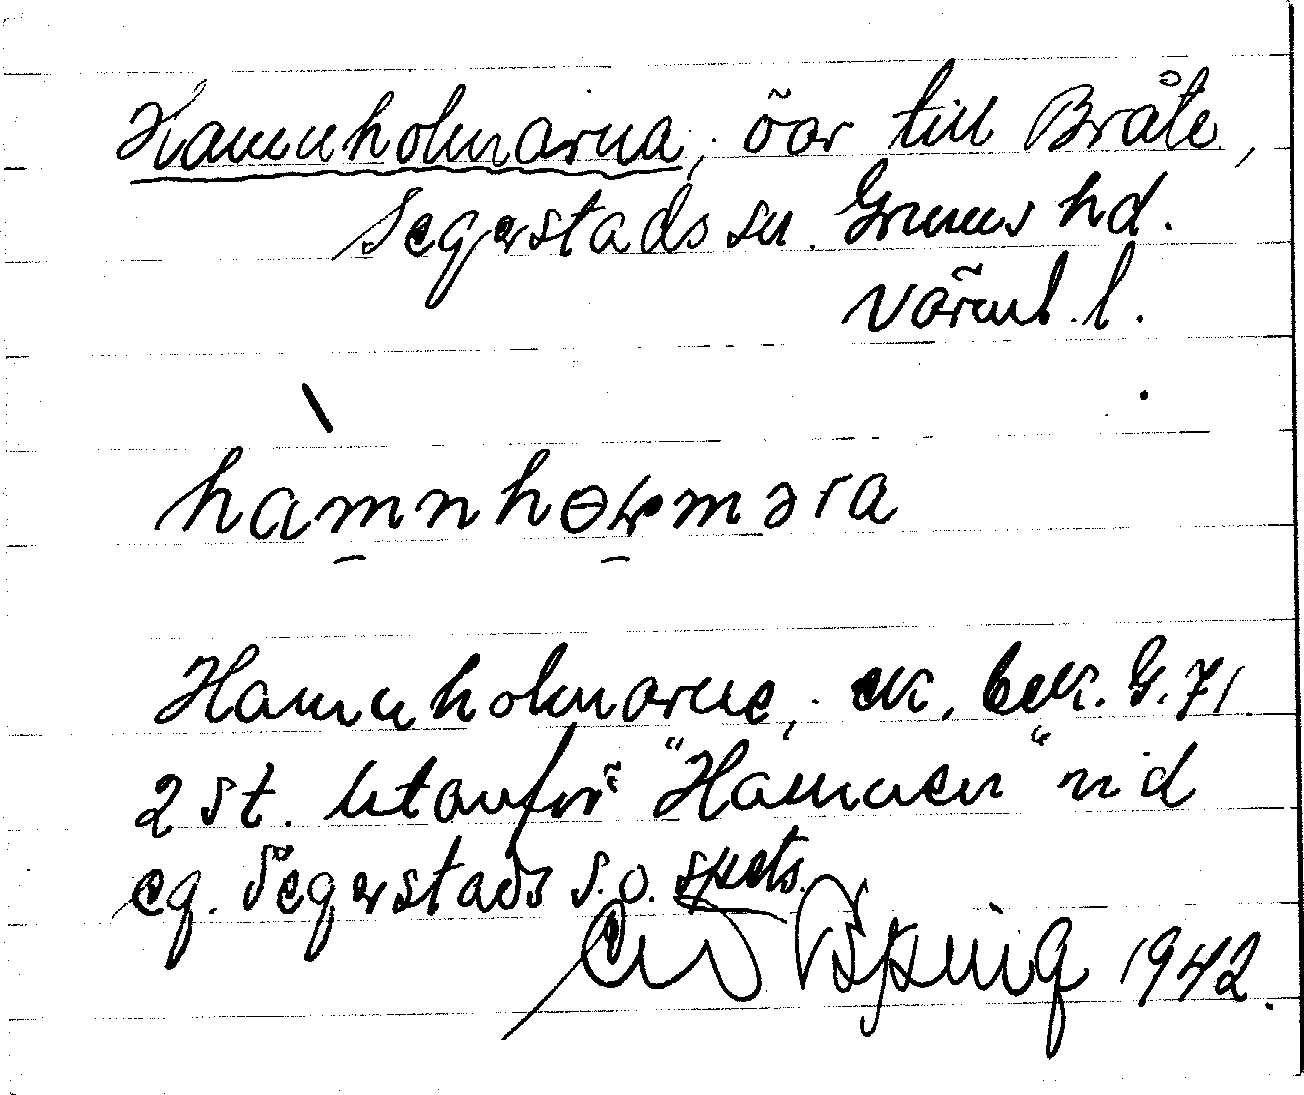 Hamnholmarna, öar till Bråte,
Segerstads sn. Grums hd.
Värml. l.
hamnhɵɽməra
Hamnholmarne, ek. bek. G. 71.
2 st. utanför "Hamnen" vid
eg. Segerstads s.o. spets.
1942.